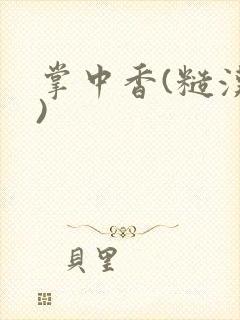 掌中香(糙漢
)
貝里